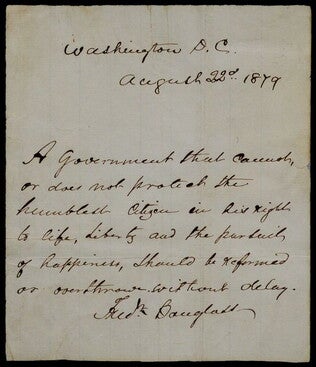 Washington D.C.
August 22d. 1879
A Government that cannot,
or does not protect the
humblest Citizen in his right
to life, Liberty and the pursuit
of happiness, Should be reformed
or overthrown without delay.
Fredk. Douglass